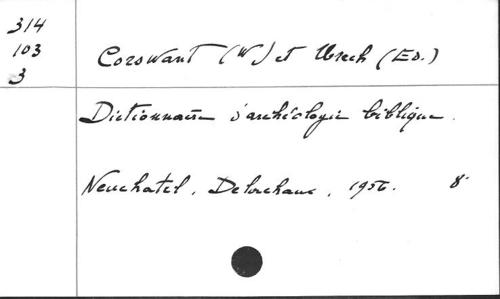 314
103
3
Corswant (W) et Urech (Ed.)
Dictionnaire d'archéologie biblique.
Neuchatel, Delachaux, 1956. 8°